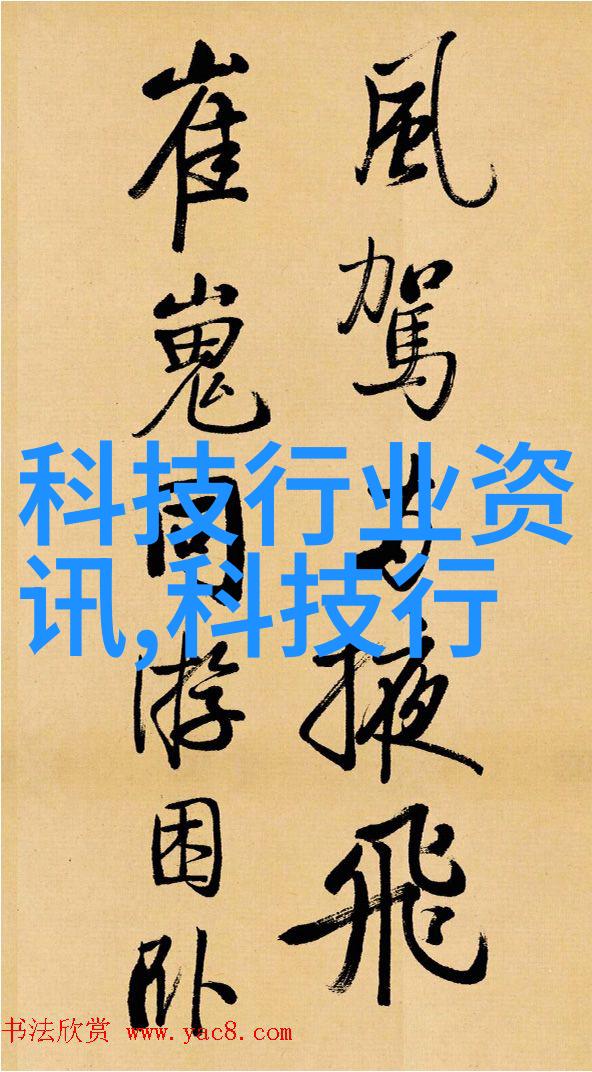 風駕掖飛
崔嵬同游困卧
科技行业资
讯,科技行
书法欣赏 www.yac8.com